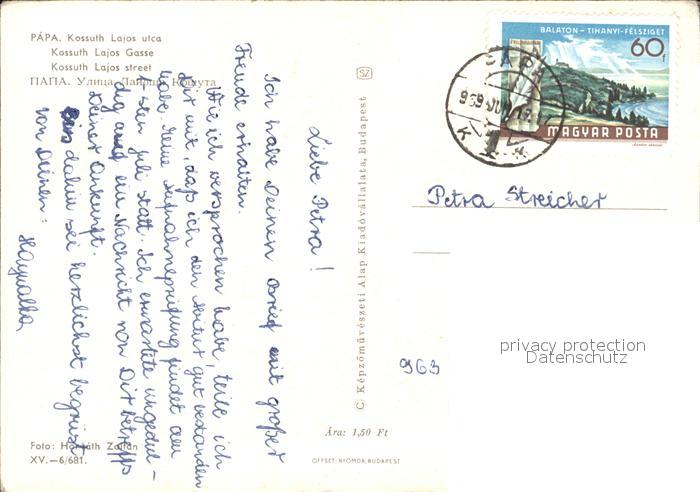 PÁPA. Kossuth Lajos utca
Kossuth Lajos Gasse
Kossuth Lajos street
ПАПА. Улица Лайоша Кошута
Liebe Petra!
Ich habe Deinen Brief mit großer
Freude erhalten.
Wie ich versprochen habe, teile ich
Dir mit, daß ich den Abitur gut bestanden
habe. Meine Aufnahmeprüfung findet am
1-sten Juli statt. Ich erwarte ungedul-
dig auf ein Nachricht von Dir betreffs
Deiner Ankunft.
Bis dahin sei herzlichst begrüsst
von Deinen:
Foto: Horváth Zoltán
XV.—6/681.
SZ
C) Képzőművészeti Alap Kiadóvállalata, Budapest
Ára: 1,50 Ft
OFFSET-NYOMDA, BUDAPEST
BALATON – TIHANYI-FÉLSZIGET
60f
MAGYAR POSTA
PÁPA
Petra Streicher
963
privacy protection
Datenschutz